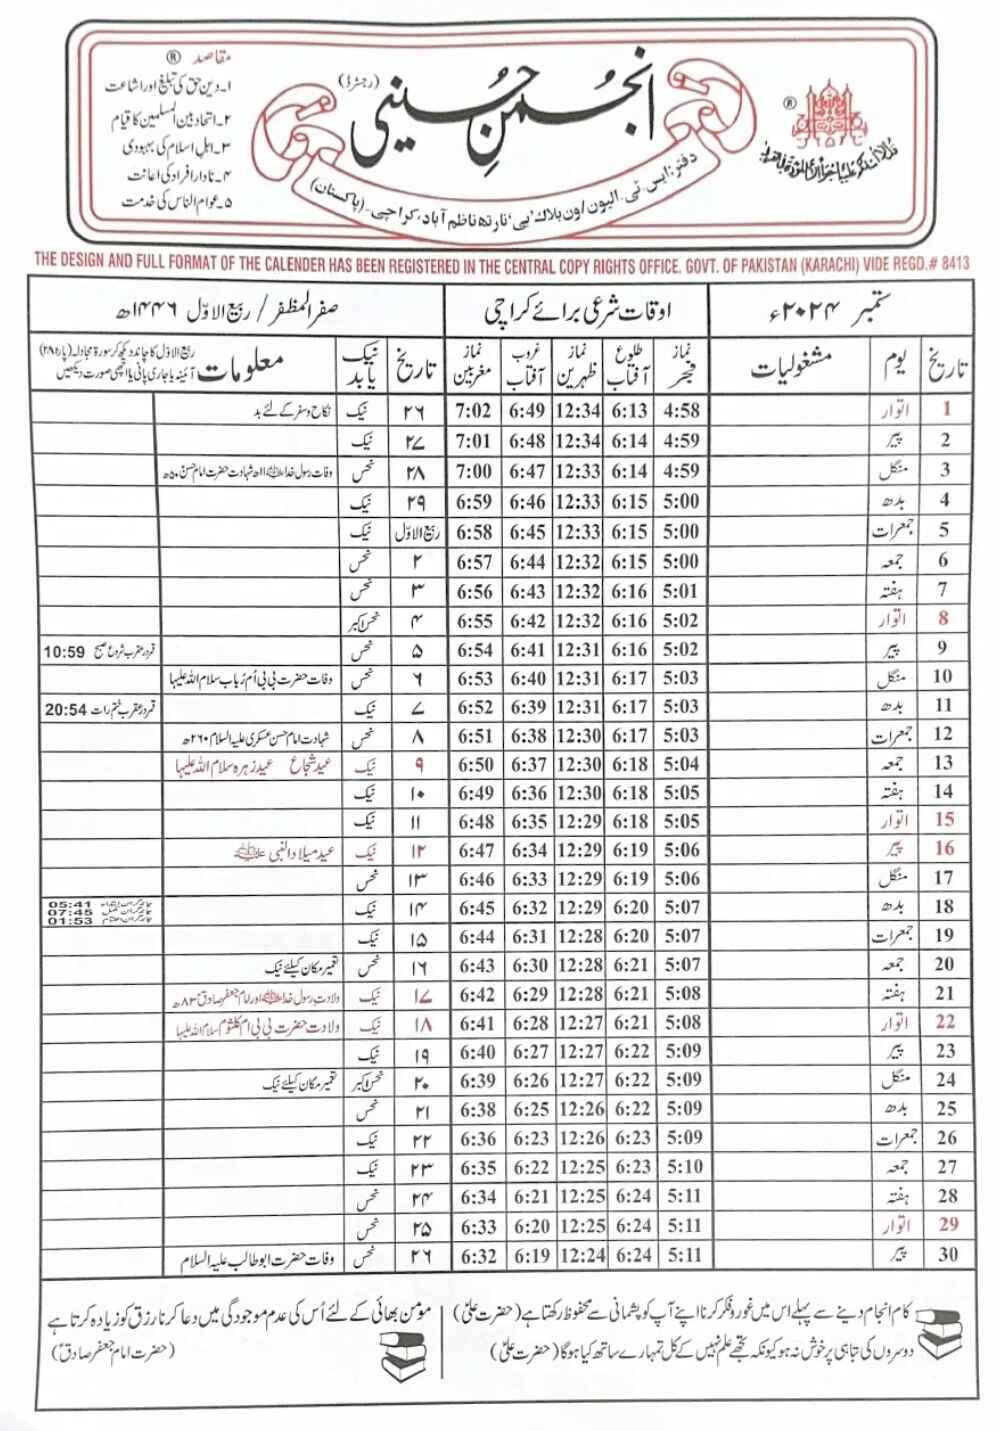 مقاصد ®
۱۔ دین حق کی تبلیغ اور اشاعت
۲۔ اتحاد بین المسلمین کا قیام
۳۔ اہل اسلام کی بہبودی
۴۔ نادار افراد کی اعانت
۵۔ عوام الناس کی خدمت
انجمنِ حسینی (رجسٹرڈ)
دفتر: ایس۔ٹی۔ الیون/ون بلاک 'بی' نارتھ ناظم آباد، کراچی۔ (پاکستان)
®
THE DESIGN AND FULL FORMAT OF THE CALENDER HAS BEEN REGISTERED IN THE CENTRAL COPY RIGHTS OFFICE. GOVT. OF PAKISTAN (KARACHI) VIDE REGD.# 8413
ستمبر ۲۰۲۴ء اوقات شرعی برائے کراچی صفر المظفر / ربیع الاوّل ۱۴۴۶ھ
تاریخ یوم مشغولیات نماز فجر طلوع آفتاب نماز ظہرین غروب آفتاب نماز مغربین تاریخ نیک یا بد معلومات ربیع الاوّل کا چاند دیکھ کر سورۃ مجادلہ (پارہ ۲۸) آئینہ یا جاری پانی یا اچھی صورت دیکھیں
1 اتوار 4:58 6:13 12:34 6:49 7:02 ۲۶ نیک نکاح و سفر کے لئے بد
2 پیر 4:59 6:14 12:34 6:48 7:01 ۲۷ نیک
3 منگل 4:59 6:14 12:33 6:47 7:00 ۲۸ نحس وفات رسول خدا ﷺ ۱۱ھ شہادت حضرت امام حسنؑ ۵۰ھ
4 بدھ 5:00 6:15 12:33 6:46 6:59 ۲۹ نیک
5 جمعرات 5:00 6:15 12:33 6:45 6:58 ربیع الاوّل نیک
6 جمعہ 5:00 6:15 12:32 6:44 6:57 ۲ نحس
7 ہفتہ 5:01 6:16 12:32 6:43 6:56 ۳ نحس
8 اتوار 5:02 6:16 12:32 6:42 6:55 ۴ نحس اکبر
9 پیر 5:02 6:16 12:31 6:41 6:54 ۵ نحس قمر در عقرب شروع صبح 10:59
10 منگل 5:03 6:17 12:31 6:40 6:53 ۶ نحس وفات حضرت بی بی اُم رُباب سلام اللہ علیہا
11 بدھ 5:03 6:17 12:31 6:39 6:52 ۷ نیک قمر در عقرب ختم رات 20:54
12 جمعرات 5:03 6:17 12:30 6:38 6:51 ۸ نحس شہادت امام حسن عسکری علیہ السلام ۲۶۰ھ
13 جمعہ 5:04 6:18 12:30 6:37 6:50 ۹ نیک عید شجاع عید زہرہ سلام اللہ علیہا
14 ہفتہ 5:05 6:18 12:30 6:36 6:49 ۱۰ نیک
15 اتوار 5:05 6:18 12:29 6:35 6:48 ۱۱ نیک
16 پیر 5:06 6:19 12:29 6:34 6:47 ۱۲ نیک عید میلاد النبی ﷺ
17 منگل 5:06 6:19 12:29 6:33 6:46 ۱۳ نحس
18 بدھ 5:07 6:20 12:29 6:32 6:45 ۱۴ نیک 05:41 07:45 01:53
19 جمعرات 5:07 6:20 12:28 6:31 6:44 ۱۵ نیک
20 جمعہ 5:07 6:21 12:28 6:30 6:43 ۱۶ نحس تعمیر مکان کیلئے نیک
21 ہفتہ 5:08 6:21 12:28 6:29 6:42 ۱۷ نیک ولادت رسول خدا ﷺ اور امام جعفر صادقؑ ۸۳ھ
22 اتوار 5:08 6:21 12:27 6:28 6:41 ۱۸ نیک ولادت حضرت بی بی ام کلثوم سلام اللہ علیہا
23 پیر 5:09 6:22 12:27 6:27 6:40 ۱۹ نیک
24 منگل 5:09 6:22 12:27 6:26 6:39 ۲۰ نحس اکبر تعمیر مکان کیلئے نیک
25 بدھ 5:09 6:22 12:26 6:25 6:38 ۲۱ نحس
26 جمعرات 5:09 6:23 12:26 6:23 6:36 ۲۲ نیک
27 جمعہ 5:10 6:23 12:25 6:22 6:35 ۲۳ نیک
28 ہفتہ 5:11 6:24 12:25 6:21 6:34 ۲۴ نحس
29 اتوار 5:11 6:24 12:25 6:20 6:33 ۲۵ نحس
30 پیر 5:11 6:24 12:24 6:19 6:32 ۲۶ نحس وفات حضرت ابو طالب علیہ السلام
کام انجام دینے سے پہلے اس میں غور و فکر کرنا اپنے آپ کو پشیمانی سے محفوظ رکھتا ہے (حضرت علیؑ)
دوسروں کی تباہی پر خوش نہ ہو کیونکہ تجھے علم نہیں کے کل تمہارے ساتھ کیا ہوگا (حضرت علیؑ)
مؤمن بھائی کے لئے اُس کی عدم موجودگی میں دعا کرنا رزق کو زیادہ کرتا ہے
(حضرت امام جعفر صادقؑ)